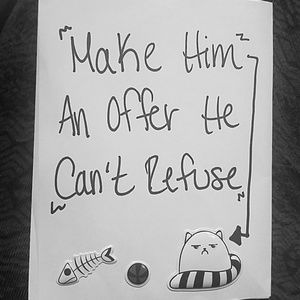 "Make Him
An Offer He
Can't Refuse"